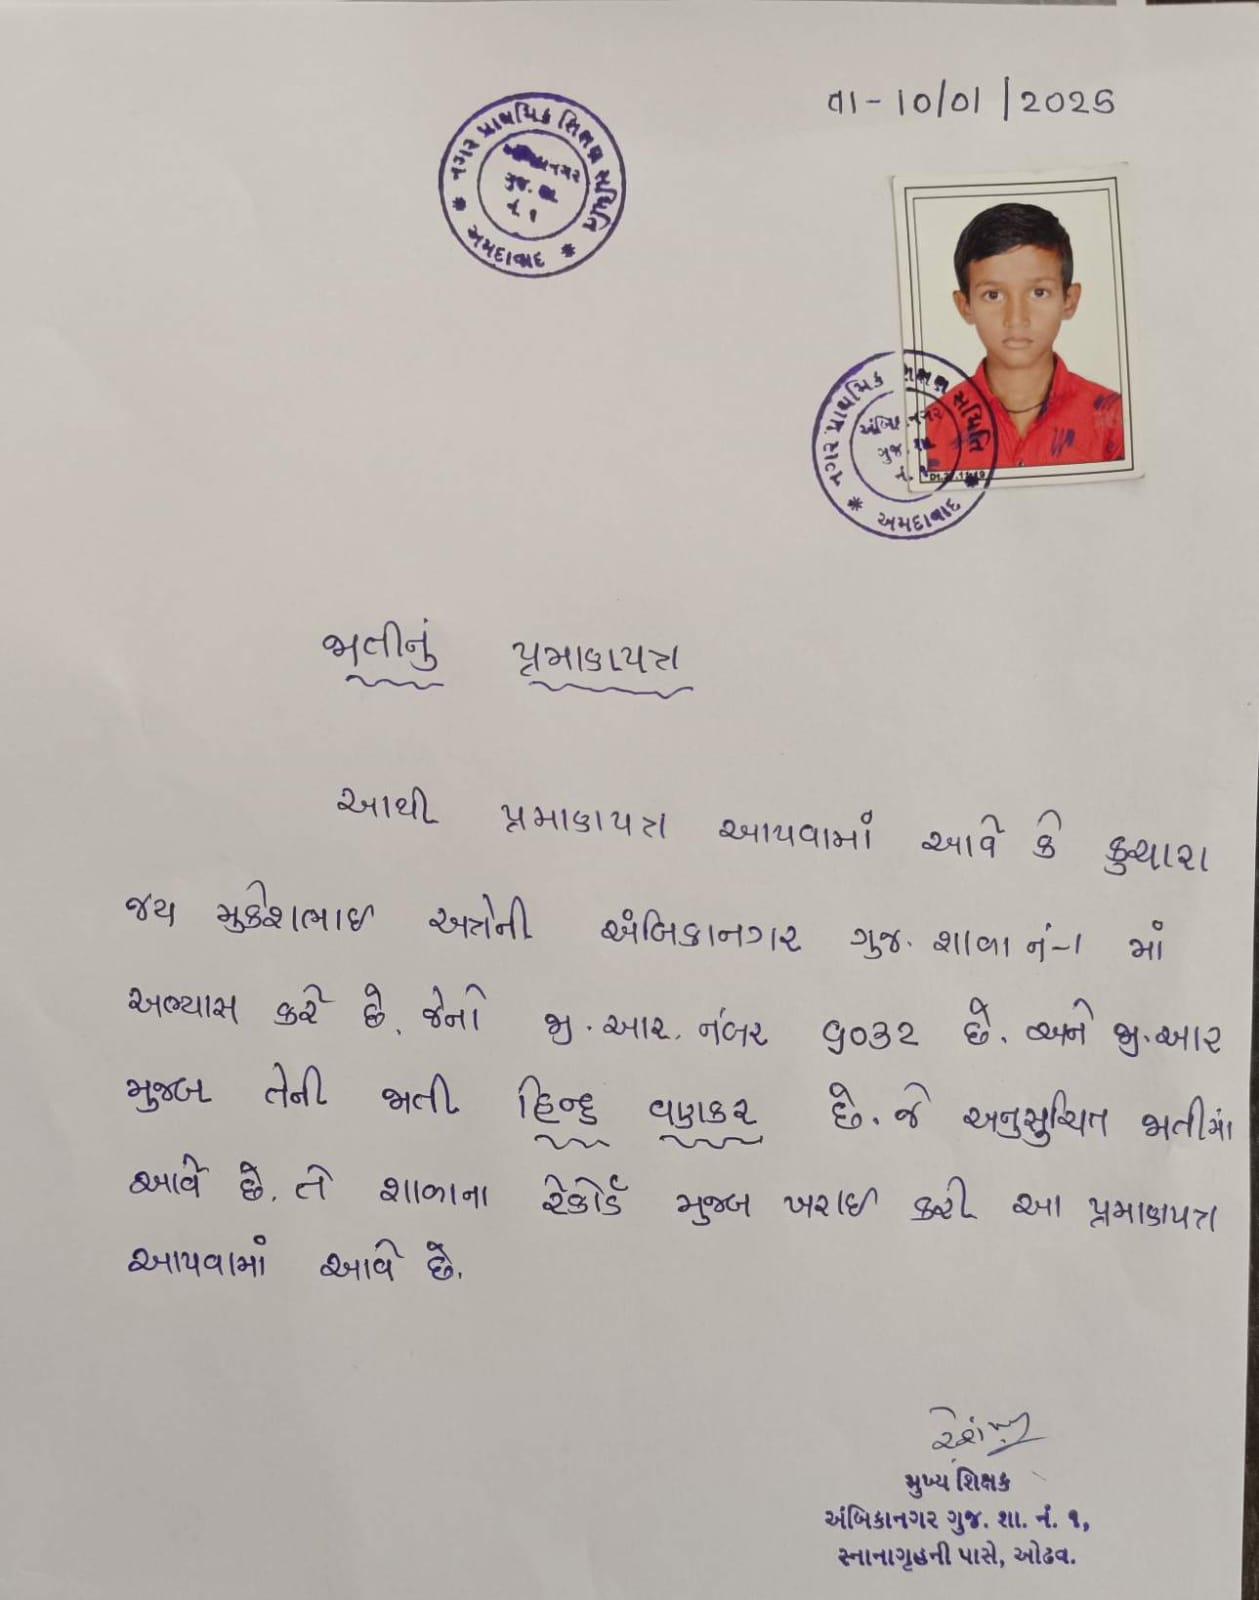 તા - 10/01/2025
નગર પ્રાથમિક શિક્ષણ સમિતિ
નગર
ગુજ. શા
નં. ૧
* અમદાવાદ *
નગર પ્રાથમિક શિક્ષણ સમિતિ
અંબિકાનગર
ગુજ. શા
નં. ૧
* અમદાવાદ *
જાતીનું પ્રમાણપત્ર
આથી પ્રમાણપત્ર આપવામાં આવે કે કુચારા
જય મુકેશભાઈ અત્રેની અંબિકાનગર ગુજ. શાળા નં-1 માં
અભ્યાસ કરે છે. જેનો જી.આર. નંબર ૭૦૩૨ છે. અને જી.આર
મુજબ તેની જાતી હિન્દુ વણકર છે. જે અનુસુચિત જાતીમાં
આવે છે. તે શાળાના રેકોર્ડ મુજબ ખરાઈ કરી આ પ્રમાણપત્ર
આપવામાં આવે છે.
મુખ્ય શિક્ષક
અંબિકાનગર ગુજ. શા. નં. ૧,
સ્નાનાગૃહની પાસે, ઓઢવ.